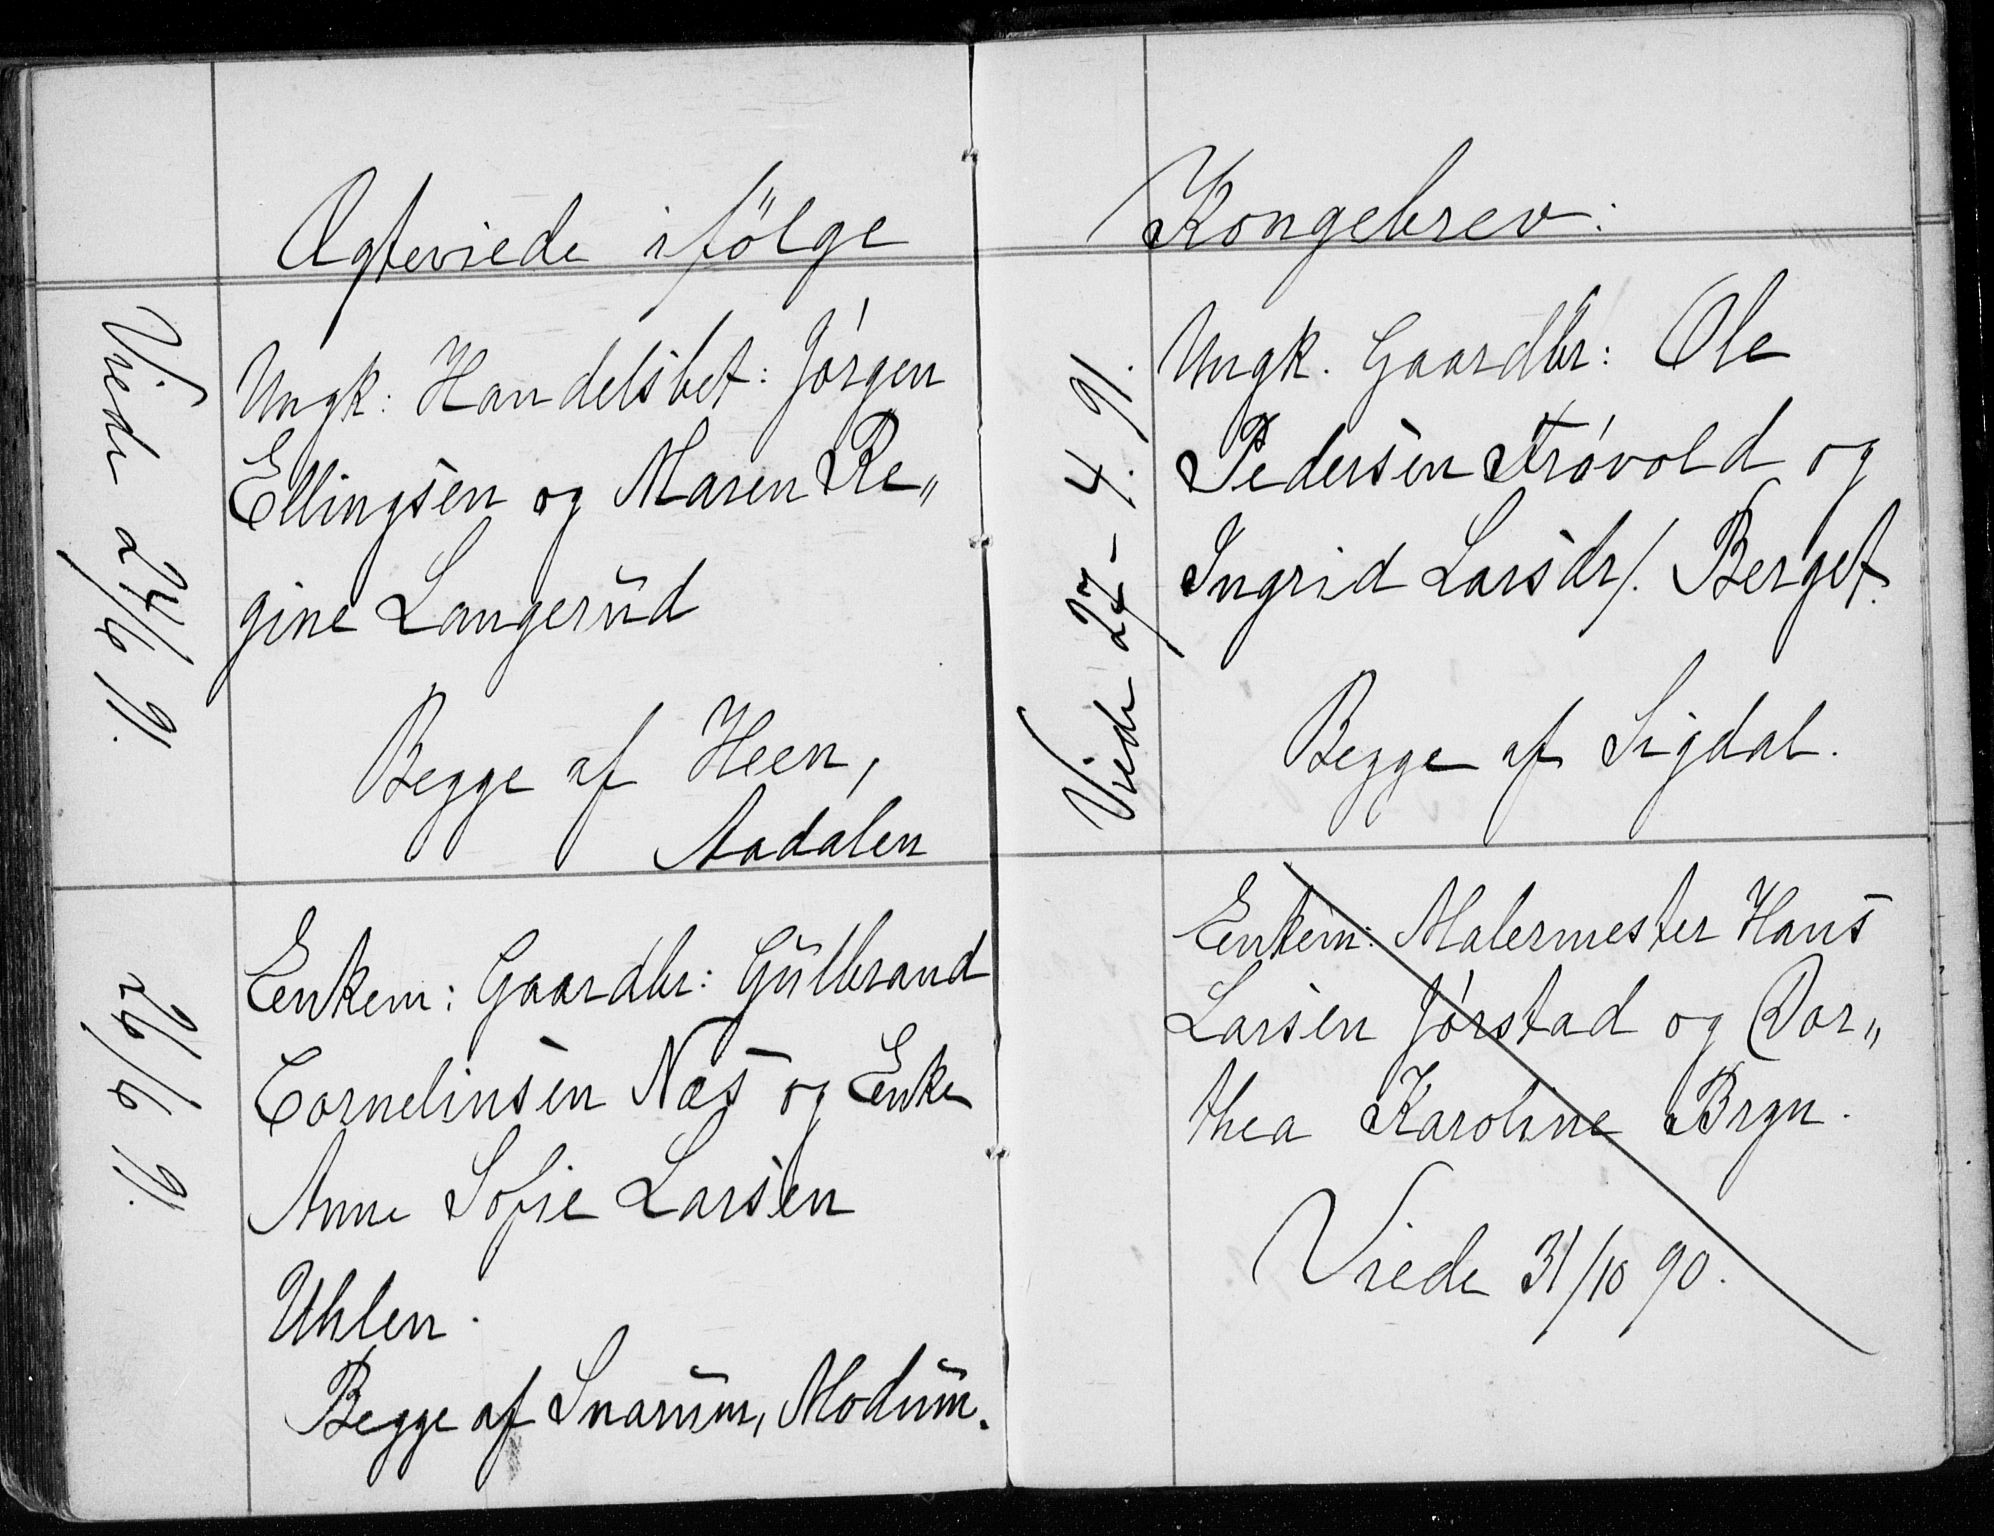 Ægteviede ifölge Kongebrev:
Viede 24/6 91.
Ungk: Handelsbet: Jörgen
Ellingsen og Maren Re„
gine Langerud
Begge af Heen,
Aadalen
26/6 91.
Enkem: Gaardbr: Gulbrand
Cornelinsen Næs og Enke
Anne Sofie Larsen
Uhlen.
Begge af Snarum, Modum.
Viede 27-4.91.
Ungk. Gaardbr: Ole
Pedersen Frövold og
Ingrid Larsdr/. Berget.
Begge af Sigdal.
Enkem: Malermester Hans
Larsen Jörstad og Dor„
thea Karoline Bryn.
Viede 31/10 90.